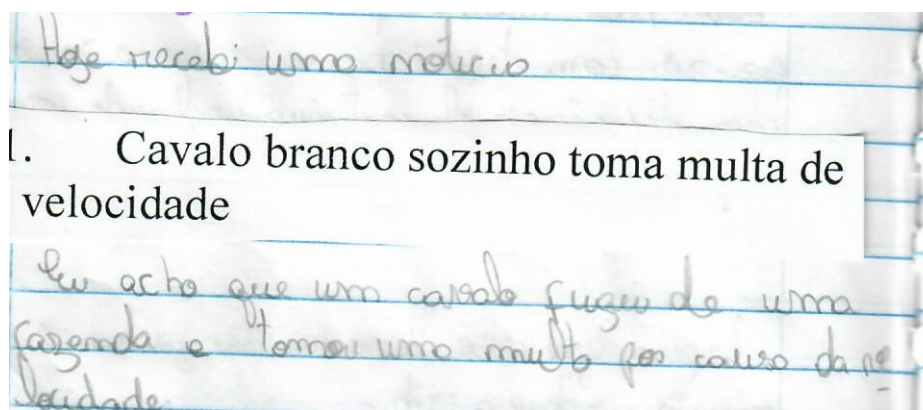 Hoje recebi uma notícia
1. Cavalo branco sozinho toma multa de
velocidade
Eu acho que um cavalo fugiu de uma
fazenda e tomou uma multa por causa da ve
locidade